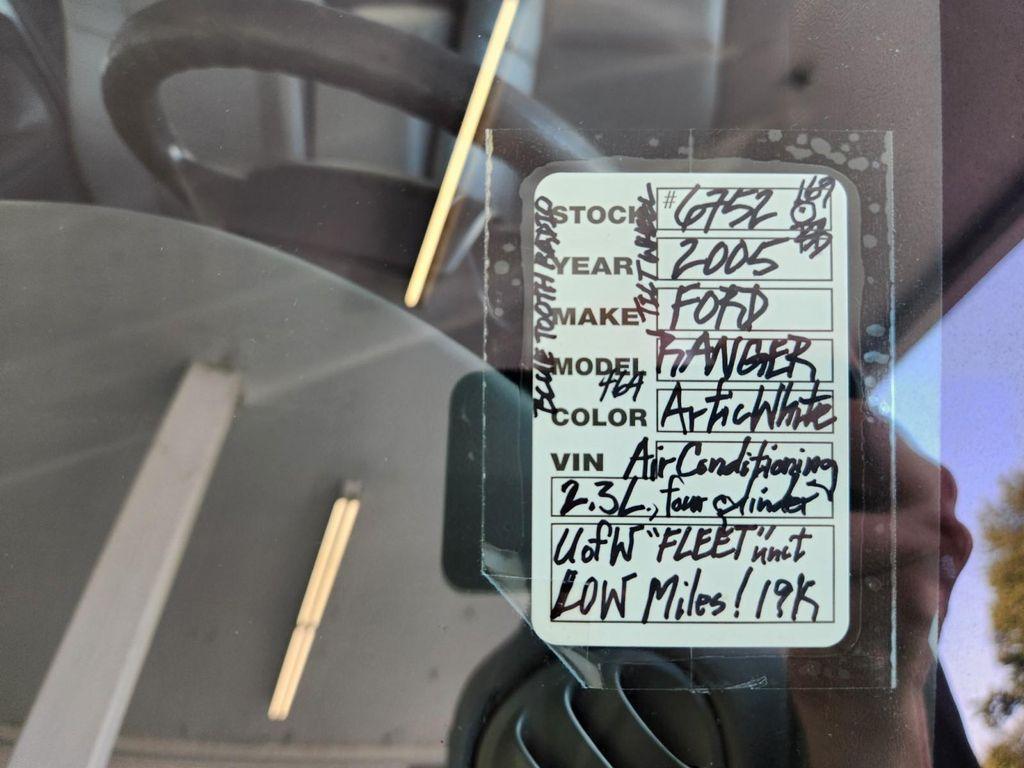 STOCK #6752
YEAR 2005
MAKE FORD
MODEL RANGER
COLOR ArticWhite
VIN Air Conditioning
2.3L., four cylinder
UofW "FLEET" unit
LOW Miles! 19K
BLUE TOOTH RADIO
TILT WHEEL